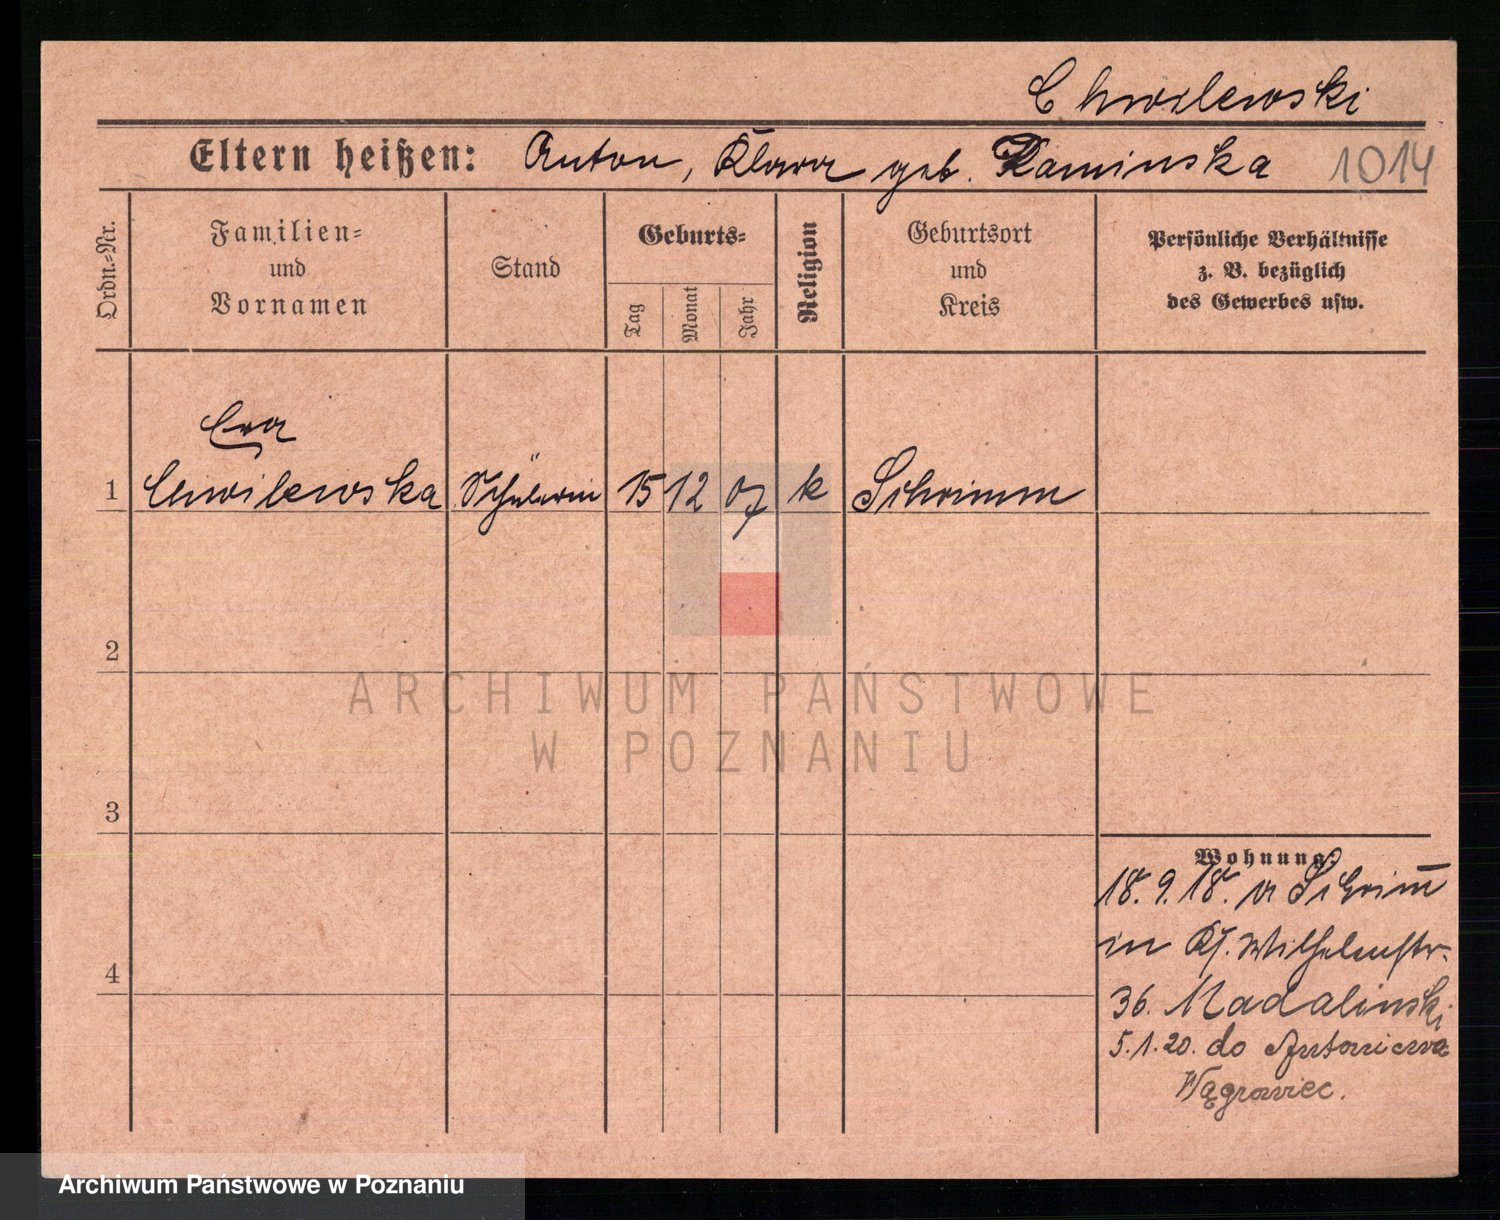 Chwilewski
Eltern heißen: Anton, Klara geb. Kaminska 1014
Ordn.-Nr.
Familien-
und
Vornamen
Stand
Geburts-
Tag
Monat
Jahr
Religion
Geburtsort
und
Kreis
Persönliche Verhältnisse
z. B. bezüglich
des Gewerbes usw.
Eva
1 Chwilewska Schülerin 15 12 07 k Schrimm
2
3
4
Wohnung:
18. 9. 18. a Schrim̅
in Kf. Wilhelmstr.
36. Madalinski
5.1.20. do Antoniewa
Wągrowiec.
ARCHIWUM PAŃSTWOWE
W POZNANIU
Archiwum Państwowe w Poznaniu